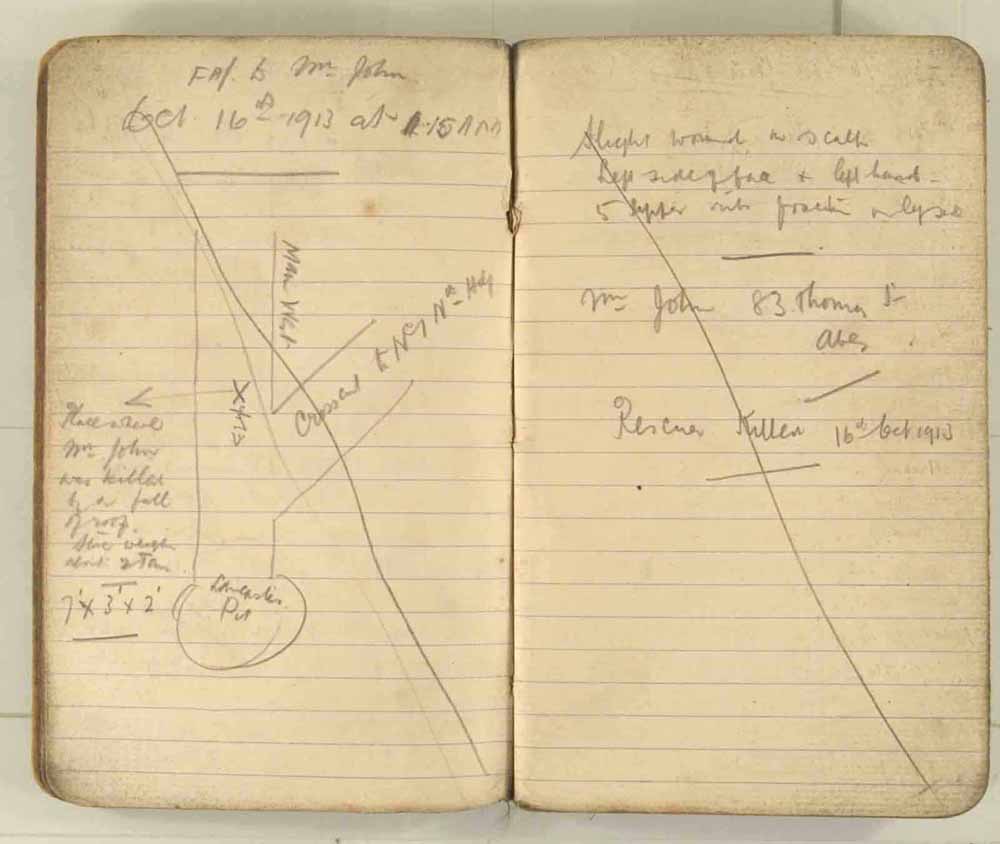 to Wm John
Oct 16th 1913 at 1.15 AM
Main West
Crosscut to No 7 Nth Hdg
X
Place where
Wm John
was killed
by a fall
of roof.
Stone weighs
about 2 Tons
7' x 3' x 2'
Lancaster
Pit
Slight wound on scalp
Left side of face & left hand
5 upper ribs
Wm John 83 Thomas St
Aber
Rescuer Killed 16th Oct 1913